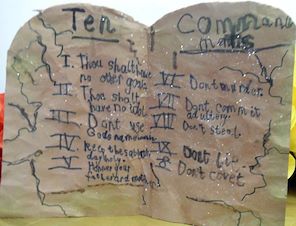 Ten
I. Thou shalt have
no other gods
II. Thou shalt
have no idol
III. Dont use
Gods name in vain
IV. Keep the sabbath
day holy.
V Honour your
father and mother
Comman
ments
VI Dont murder
VII Dont commit
adultery
VIII Dont steal.
IX Dont lie
X Dont covet